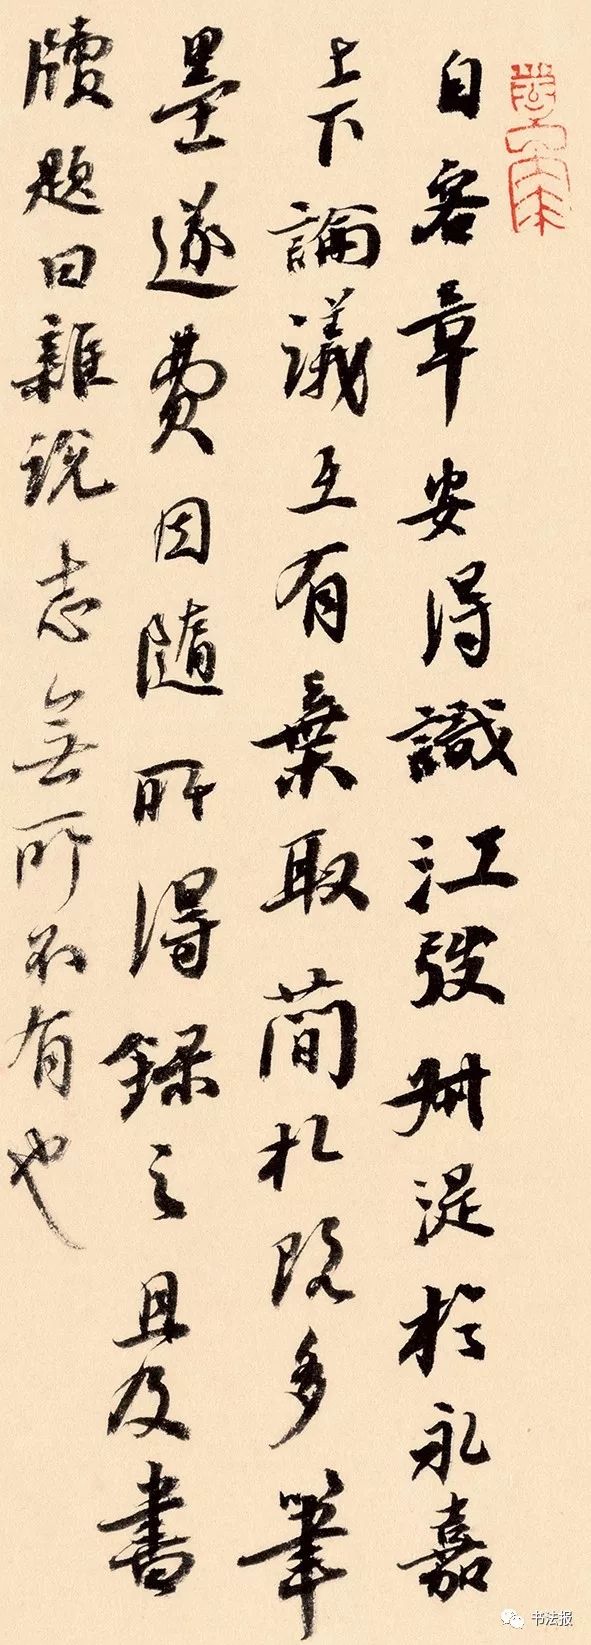 自客章安得識江弢叔湜於永嘉
上下論議互有棄取簡札既多筆
墨遂費因隨所得錄之且及書
牘題曰雜說志無所不有也
书法报